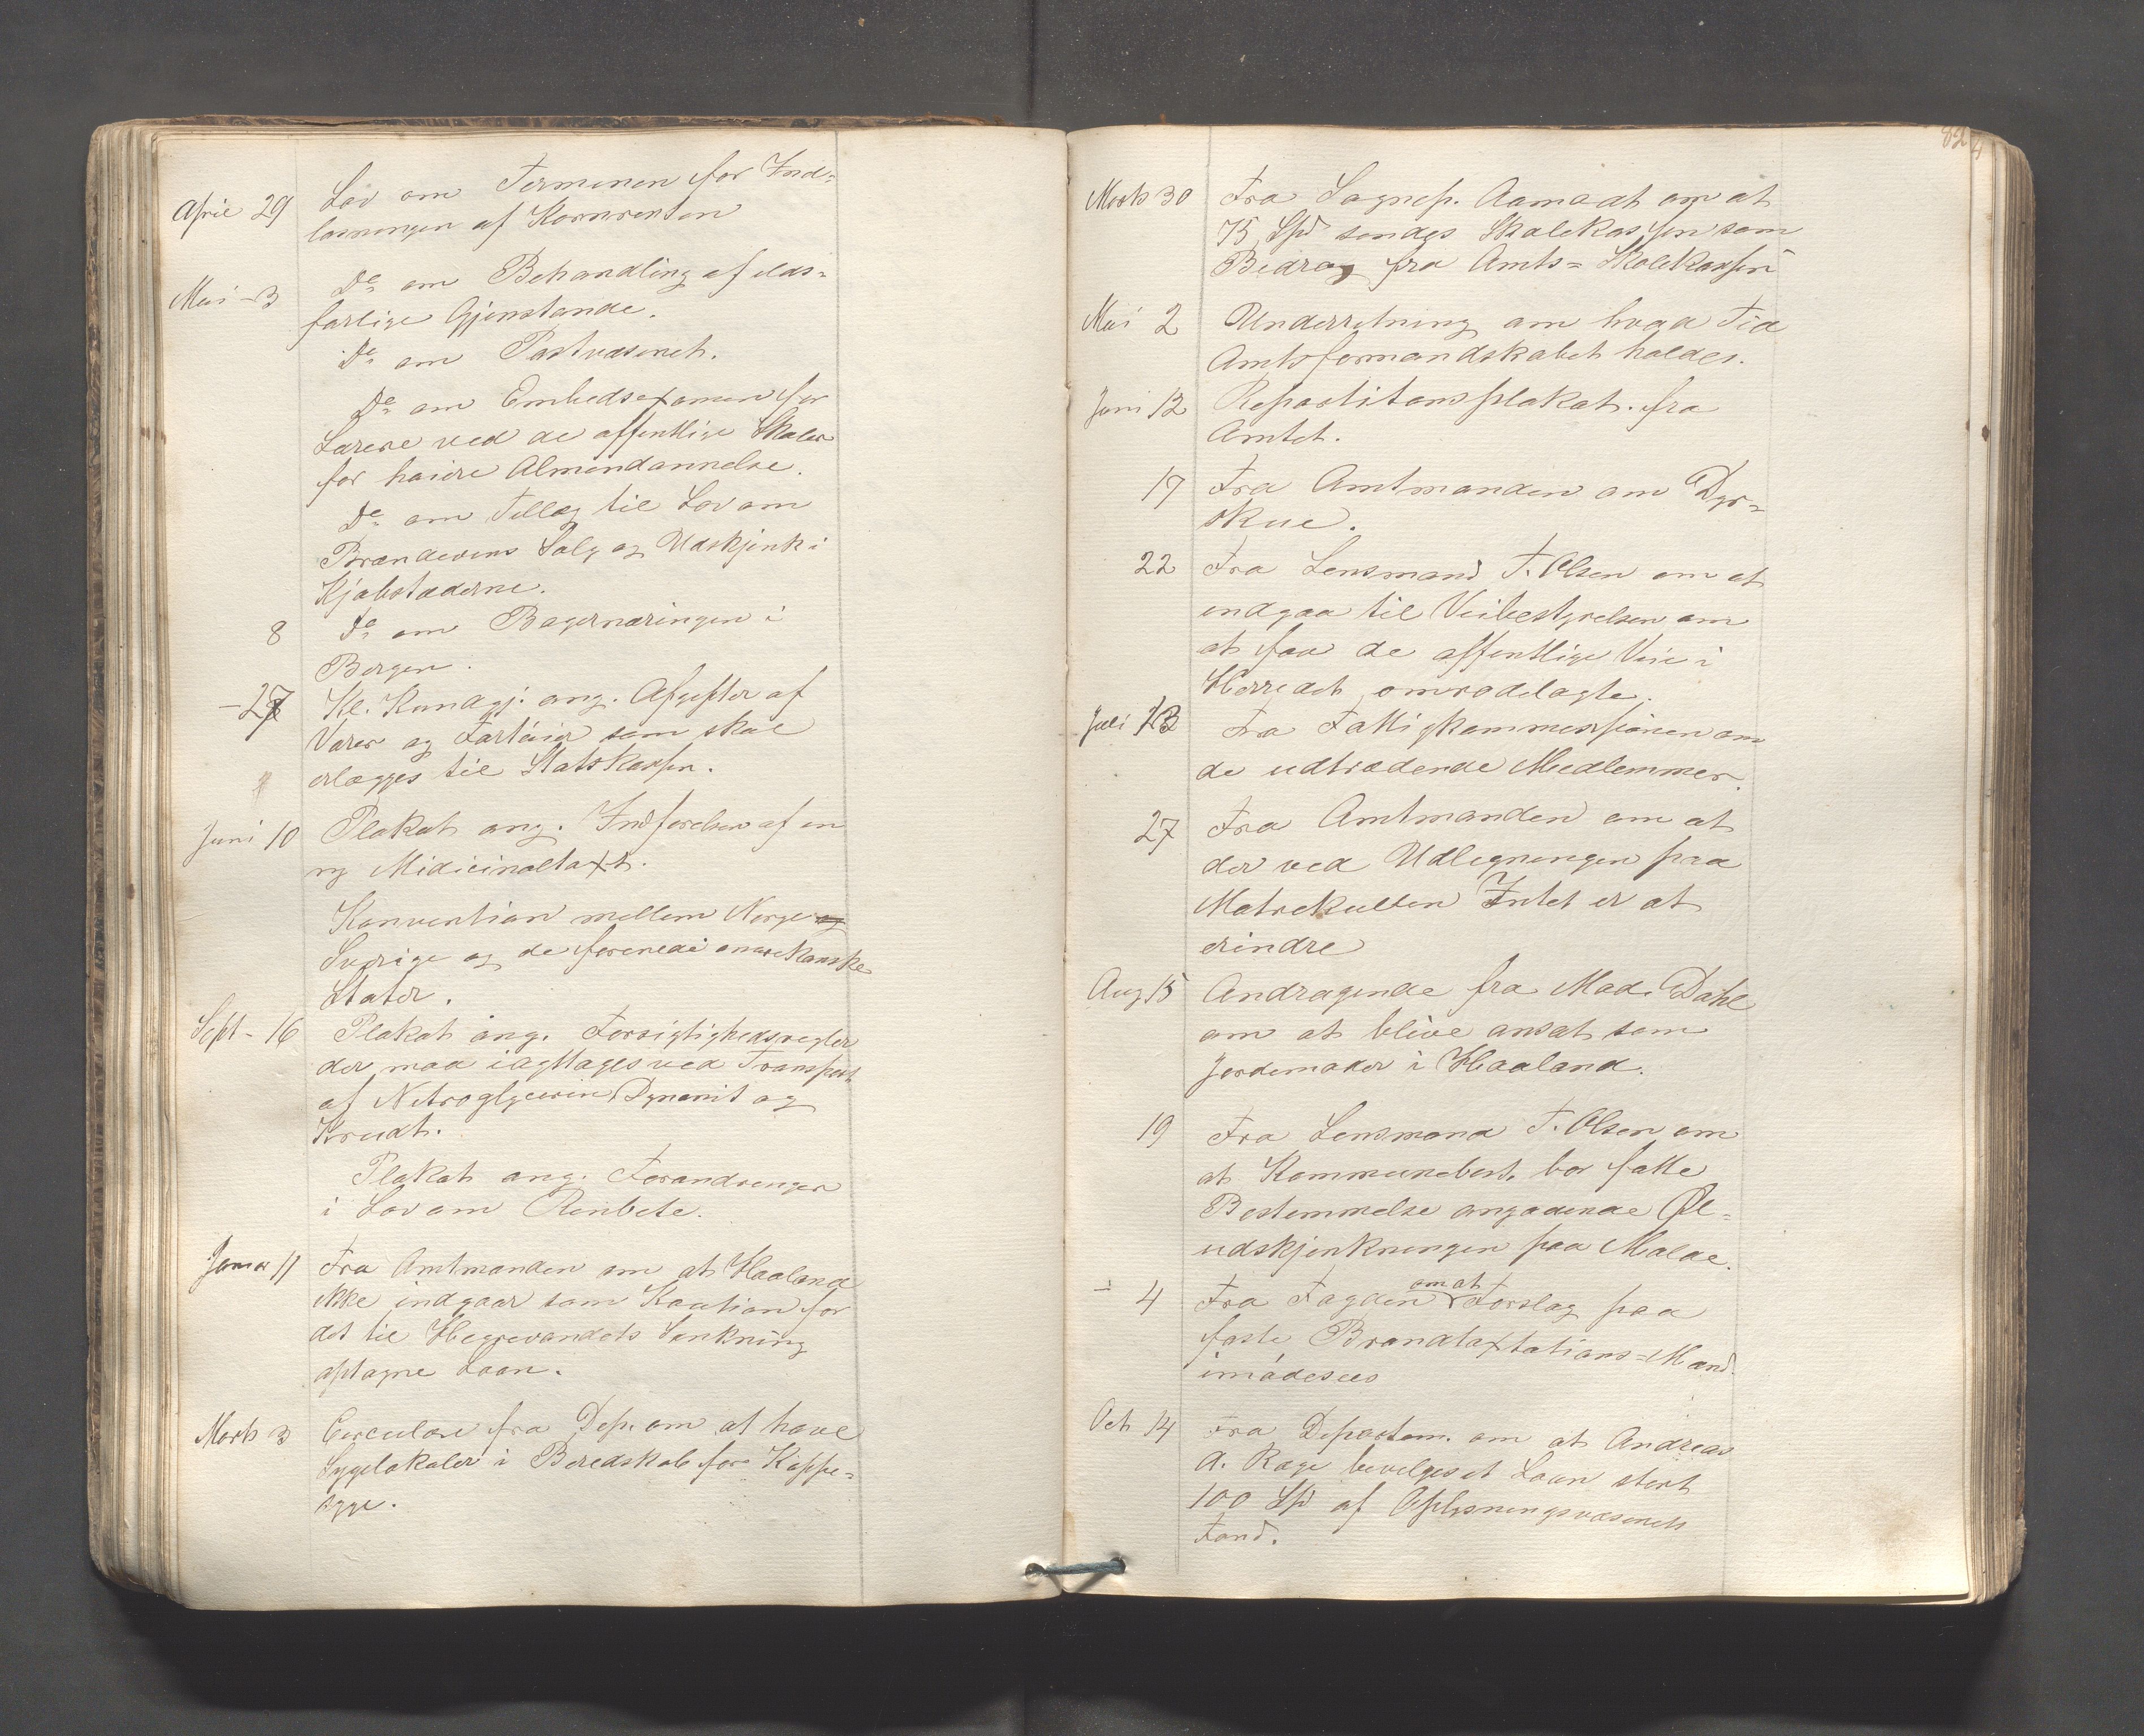 April 29 Lov om Terminen for Ind=
løsningen af Kornrenten
Mai - 3 Do om Behandling af ilds=
farlige Gjenstande.
Do om Postvæsenet.
Do om Embedsexamen for
Lærere ved de offentlige Skoler
for høiere Almendannelse.
Do om Tillæg til Lov om
Brændevins Salg og Udskjenk i
Kjøbstæderne.
8 Do om Bagernæringen i
Bergen.
- 27 Kl. Kundgj. ang. Afgifter af
Varer og Fartøier som skal
erlægges til Statskassen.
Juni 10 Plakat ang. Indførelsen af en
ny Midicinaltaxt.
Konvention mellem Norge og
Sverige og de forenede amerekanske
Stater.
Sept - 16 Plakat ang. Forsigtighedsregler
der maa iagttages ved Transport
af Nitroglycerin Dynamit og
Krudt.
Plakat ang. Forandringer
i Lov om Renbete.
Januar 11 Fra Amtmanden om at Haaland
ikke indgaar som Kaution for
det til Hegrevandets Senkning
optagne Laan.
Marts 3 Circulære fra Dep. om at have
Sygelokaler i Beredskab for Koppe=
syge.
82
Marts 30 Fra Sognep. Aamodt om at
75 Spd sendes Skolekassen som
Bidrag fra Amts=Skolekassen
Mai 2 Underretning om hvad Tid
Amtsformandskabet holdes.
Juni 12 Repartitionsplakat. fra
Amtet.
17 Fra Amtmanden om Dyr=
skue.
22 Fra Lensmand T. Olsen om at
indgaa til Veibestyrelsen om
at faa de offentlige Veie i
Herredet omrodelagte.
Juli 13 Fra Fattigkommissionen om
de udtrædende Medlemmer.
27 Fra Amtmanden om at
der ved Udlegningen paa
Matrekullen Intet er at
erindre
Aug 15 Andragende fra Mad. Dahl
om at blive ansat som
Jordemoder i Haaland.
19 Fra Lensmand T. Olsen om
at Kommunebest. bør fatte
Bestemmelse angaaende Øl=
udskjenkningen paa Malde.
- 4 Fra Fogden om at Forslag paa
faste Brandtaxtations=Mænd
imødesees
Oct 14 Fra Departem. om at Andreas
A. Rage bevilges et Laan stort
100 Spd af Oplysningsvæsenets
Fond.